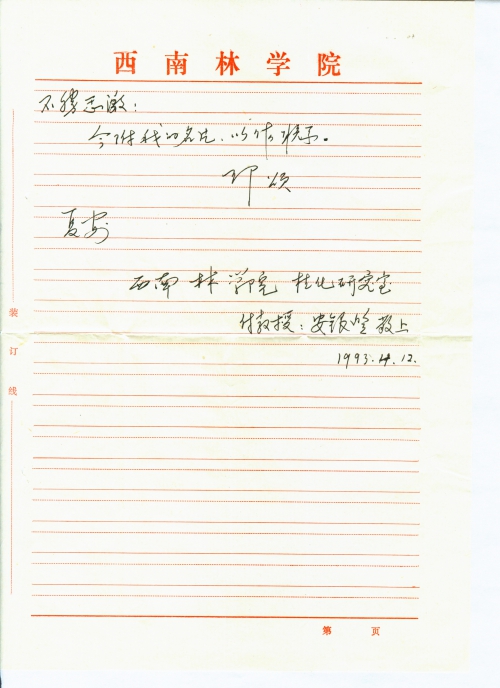 西南林学院
不胜感激！
今附我的名片，以作联系。
即颂
夏安
西南林学院 林化研究室
付教授：安银 敬上
1993.4.12.
装订线
第 页